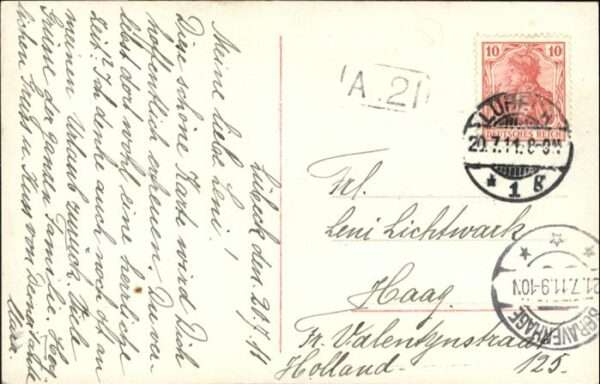 Lübeck den 20.7.11
Meine liebe Leni!
Diese schöne Karte wird Dich
hoffentlich erfreuen. Du ver-
lebst dort wohl eine herrliche
Zeit? Ich denke auch noch oft an
meinen Urlaub zurück. Viele
Grüsse der ganzen Familie. Herz-
lichen Gruss u. Kuss von Deiner Tante
A. 21
10 10
DEUTSCHES REICH
LÜBECK
20.7.11. 8-9N
* 1 g
Frl.
Leni Lichtwark
Haag.
Fr. Valentynstraat
125.
Holland.
21.7.11.9-10V
'S GRAVENHAGE